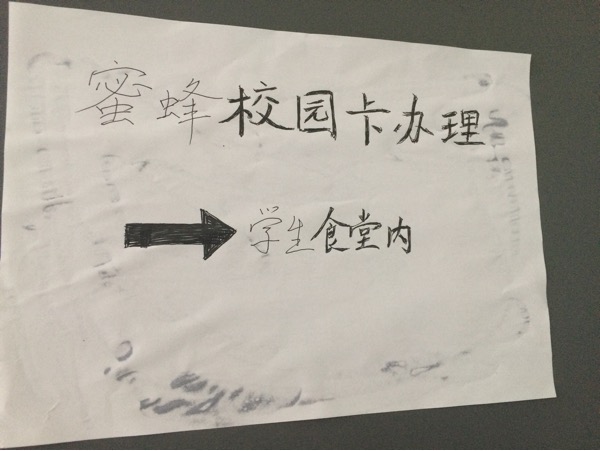 蜜蜂校园卡办理
学生食堂内